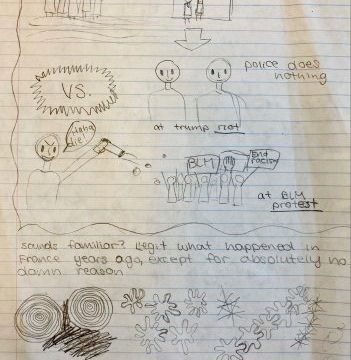 police does
nothing
VS.
at trump riot
Haha
die!
BLM
End
racism
at BLM
protest
sounds familiar? legit what happened in
France years ago, except for absolutely no
damn reason